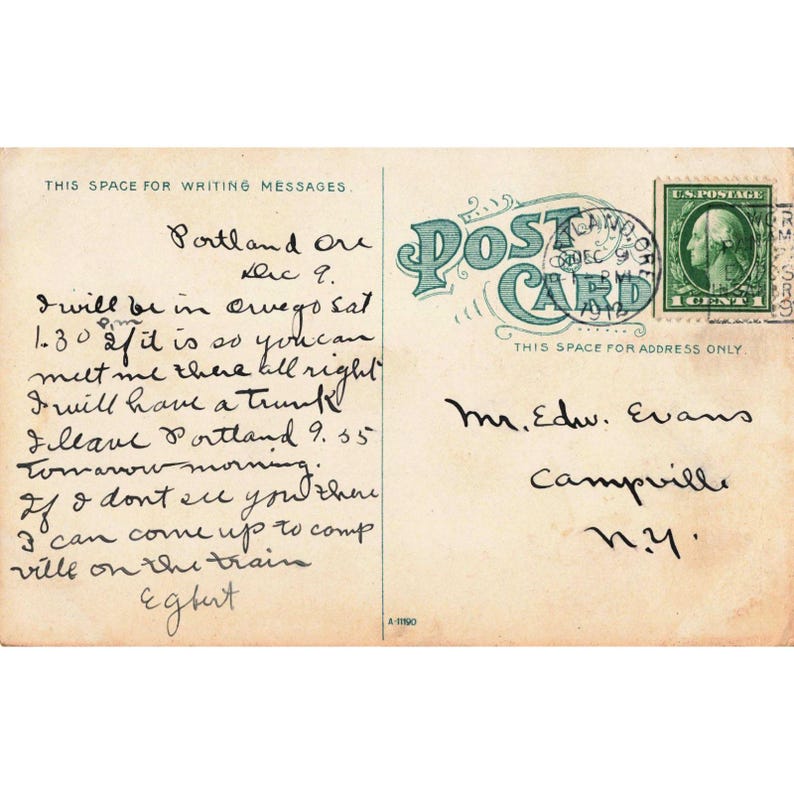 THIS SPACE FOR WRITING MESSAGES.
Portland Ore
Dec 9.
I will be in Owego Sat
1.30 pm If it is so you can
meet me there all right
I will have a Trunk
I leave Portland 9.55
tomorrow morning.
If I dont see you there
I can come up to camp
ville on the train
Egbert
POST CARD
PORTLAND, ORE.
DEC 9
PM
1912
U.S. POSTAGE
1 CENT 1
THIS SPACE FOR ADDRESS ONLY.
Mr. Edw. Evans
Campville
N.Y.
A-11190